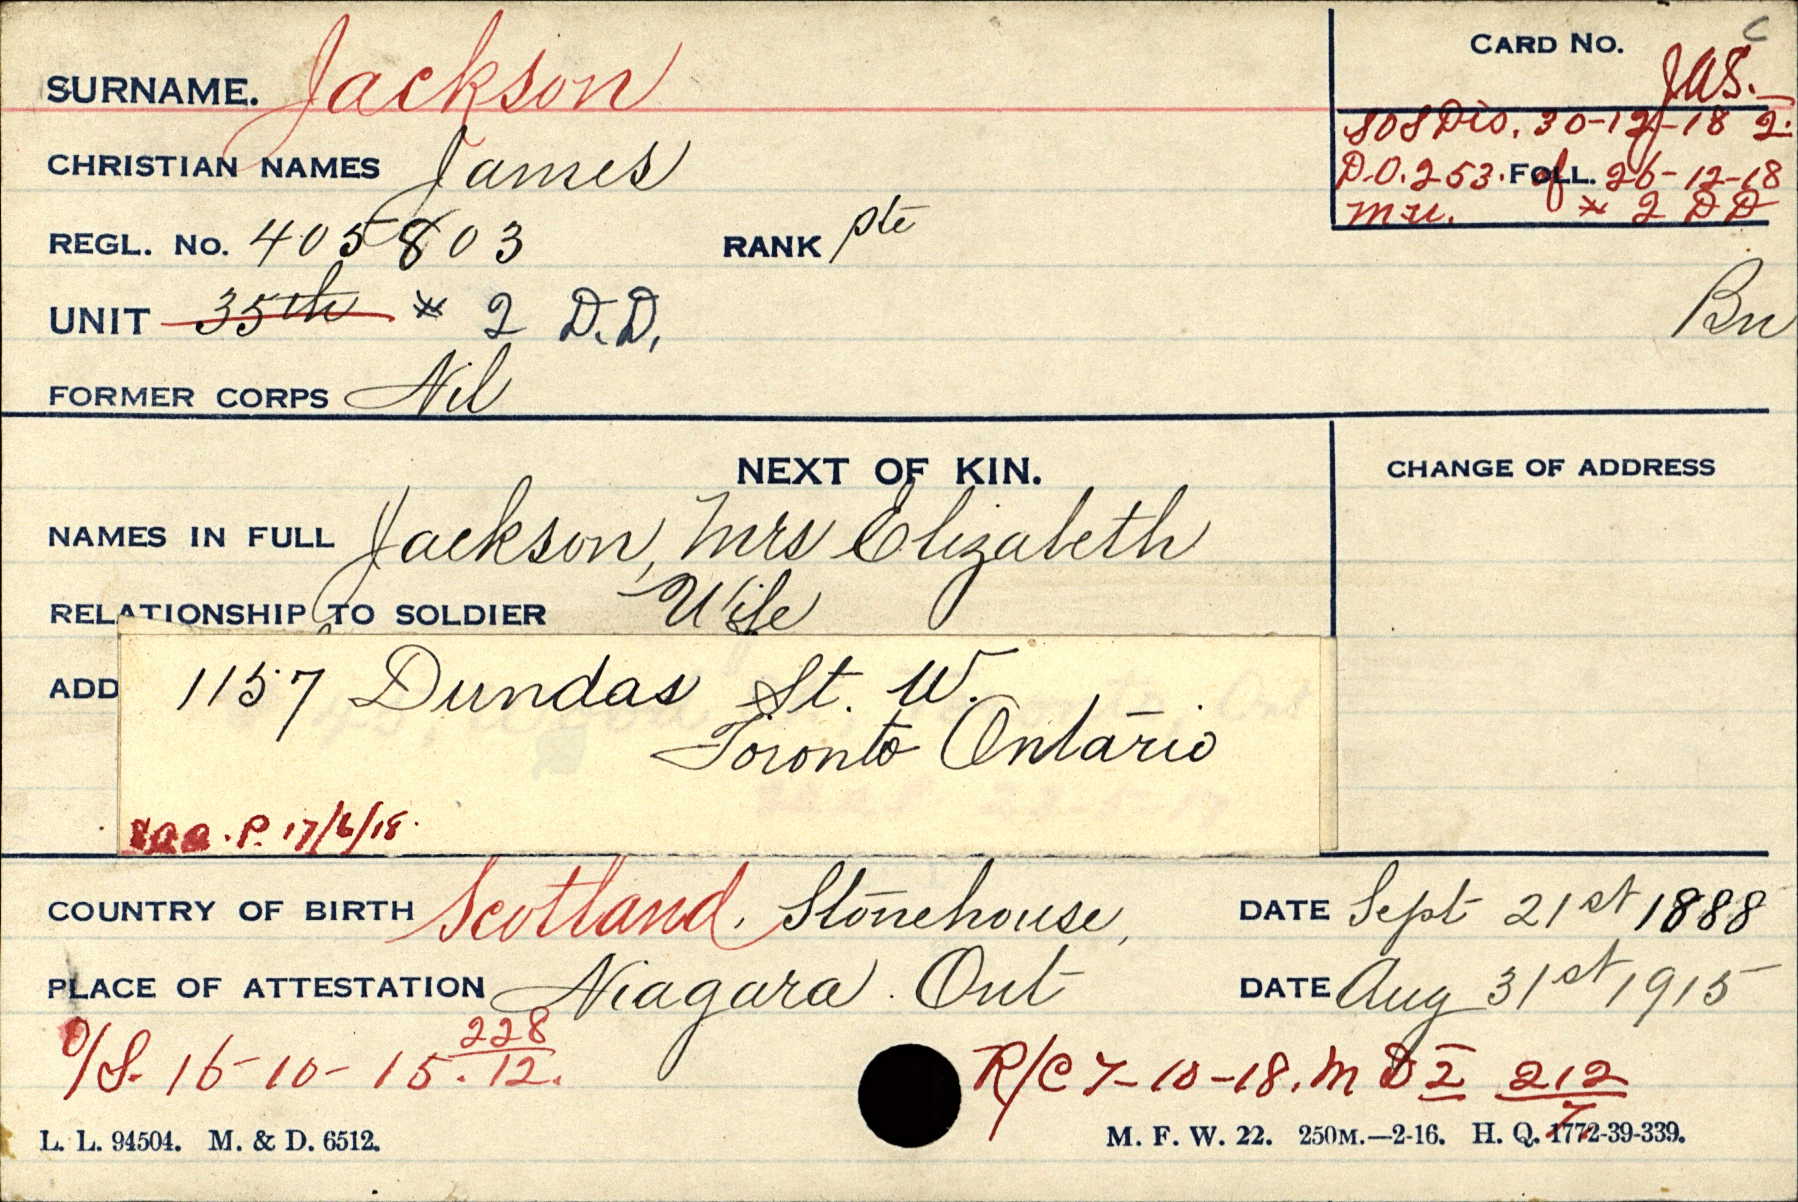 C
CARD No.
SURNAME. Jackson
Jas.
SOS Dis. 30-12-18 2.
CHRISTIAN NAMES James
D.O. 253. FOLL. of 26-12-18
# 2 DD
REGL. No. 405803 RANK Pte
UNIT 35th # 2 D.D. Bn
FORMER CORPS Nil
NEXT OF KIN. CHANGE OF ADDRESS
NAMES IN FULL Jackson, Mrs Elizabeth
RELATIONSHIP TO SOLDIER Wife
ADD 1157 Dundas St. W.
Toronto Ontario
P. 17/6/18.
COUNTRY OF BIRTH Scotland, Stonehouse, DATE Sept 21st 1888
PLACE OF ATTESTATION Niagara. Ont DATE Aug 31st 1915
O/S. 16-10-15. 228/12. R/C 7-10-18. M D 2 212/7
L. L. 94504. M. & D. 6512. M. F. W. 22. 250M.—2-16. H. Q. 1772-39-339.